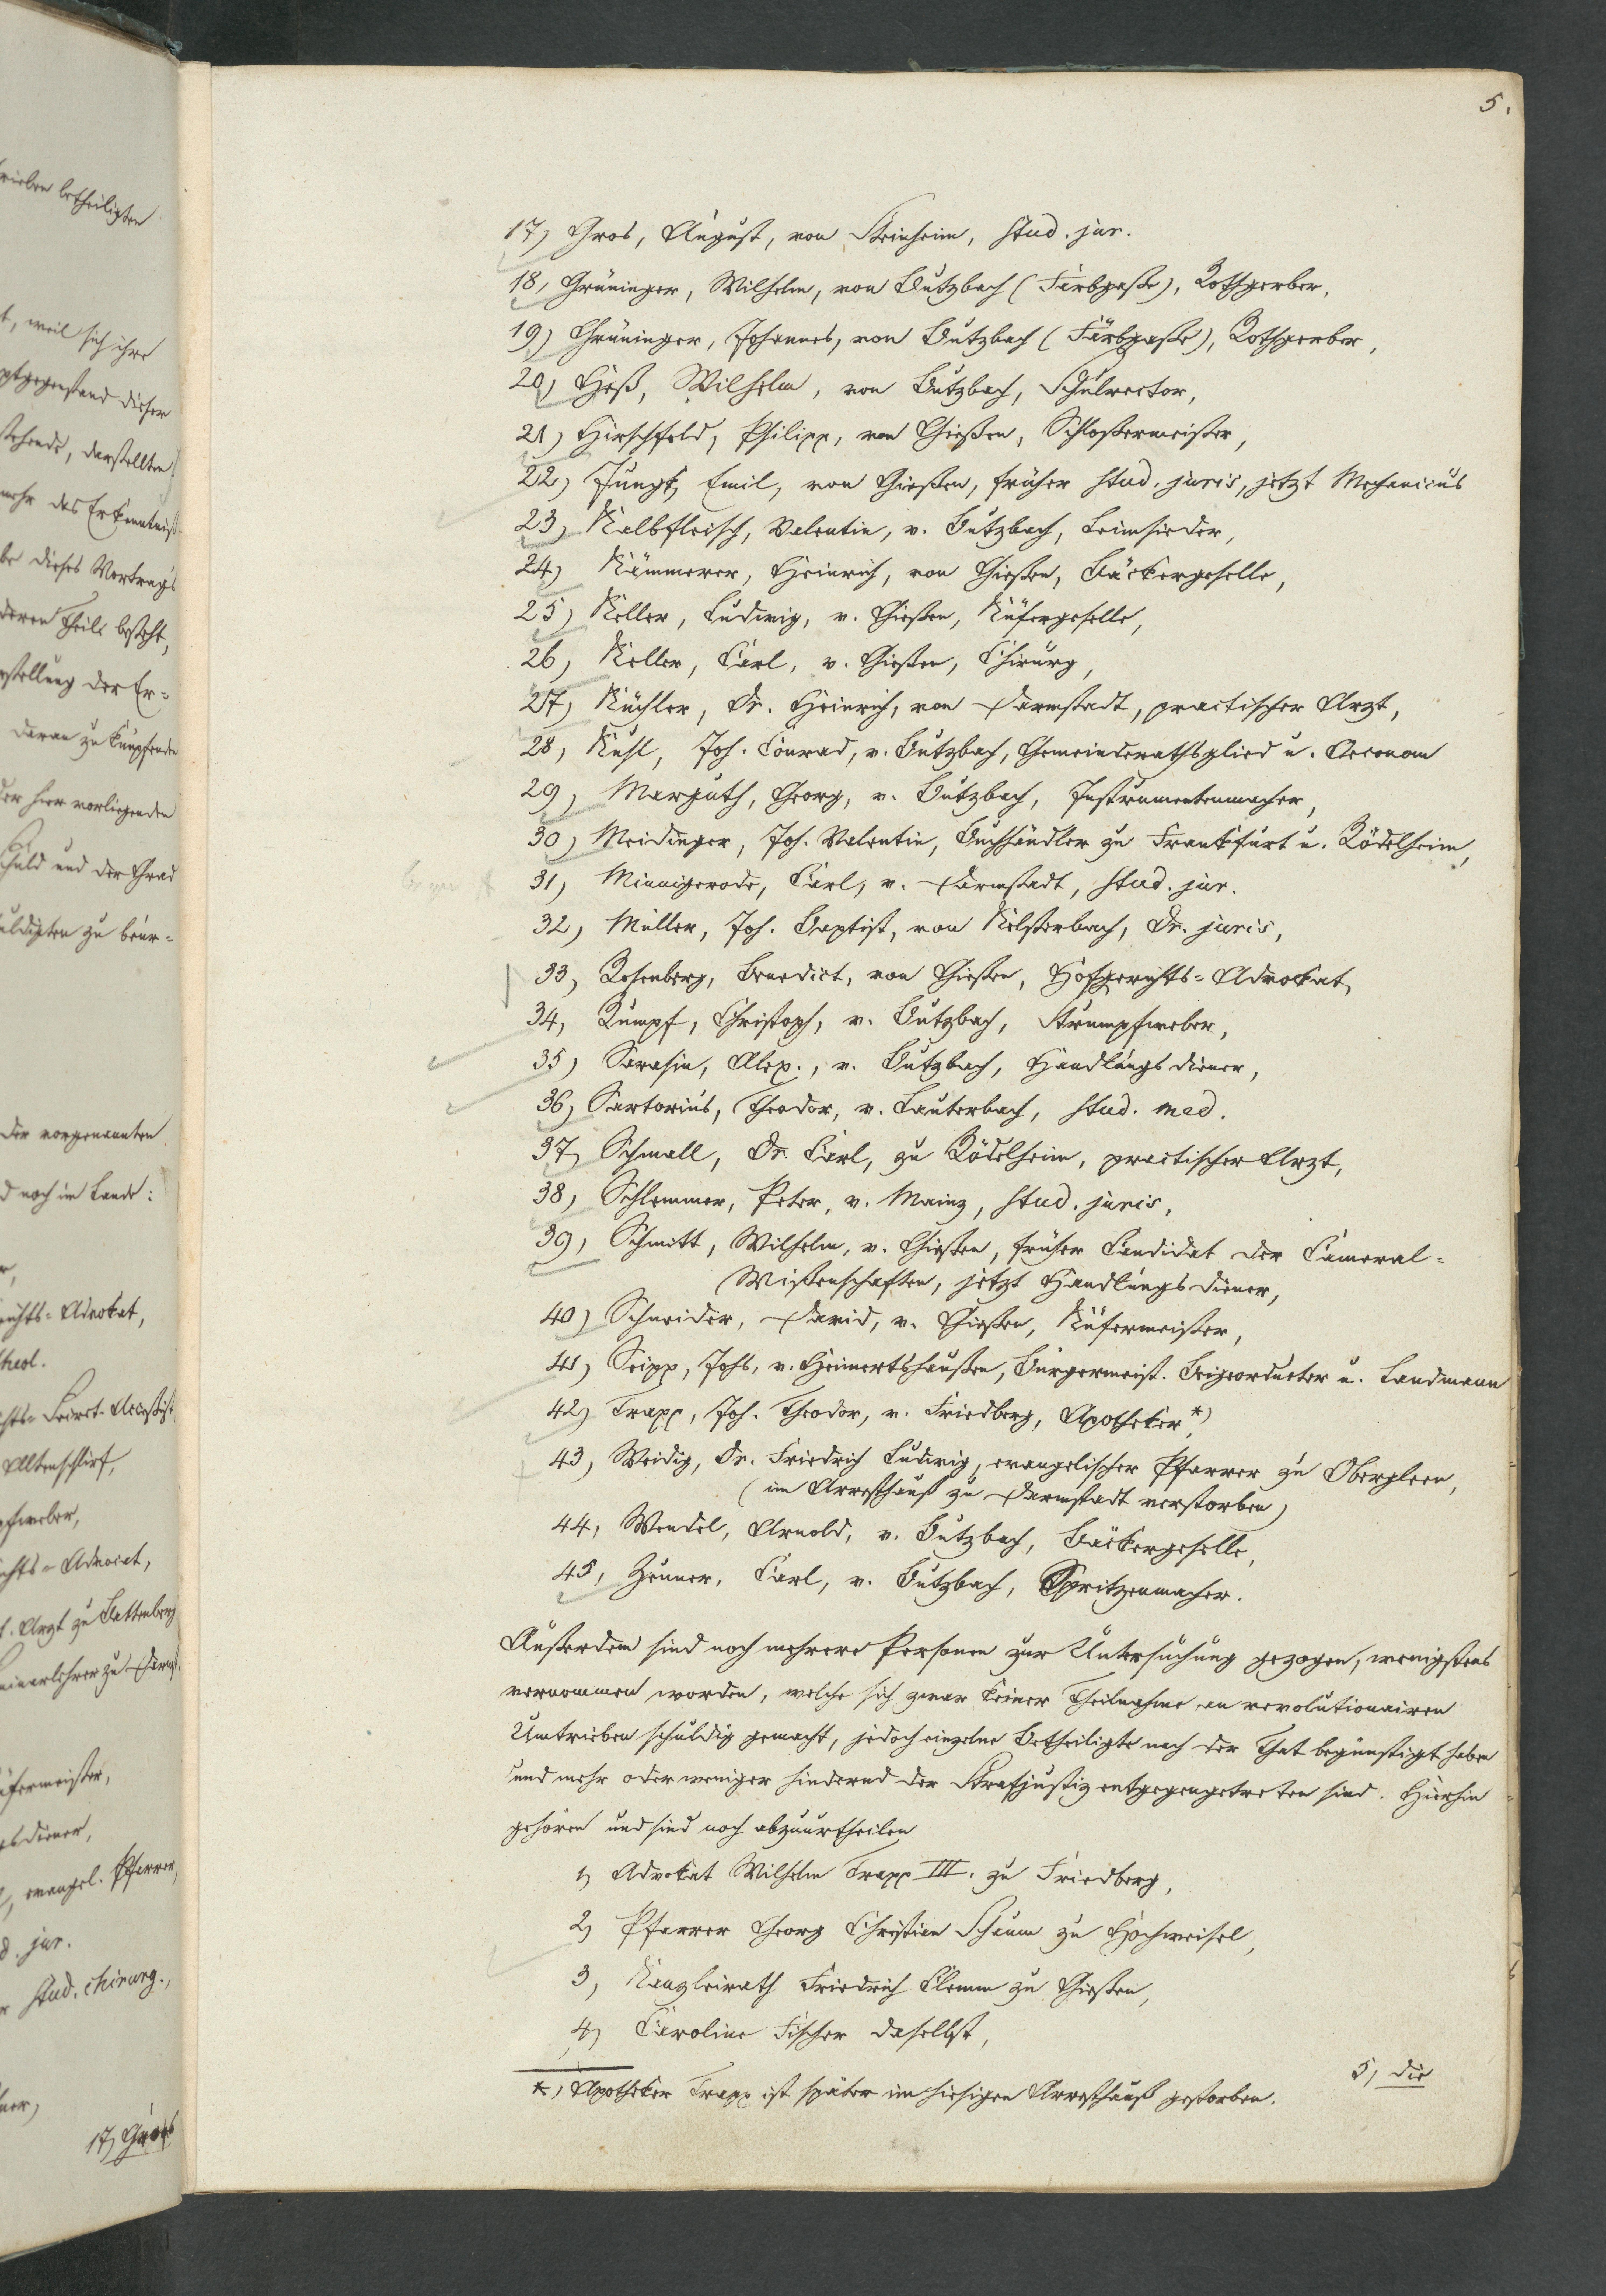 5.
17) Gros, August, von Steinheim, stud. jur.
18) Grüninger, Wilhelm, von Butzbach (Färbgaße), Rothgerber,
19) Grüninger, Johannes, von Butzbach (Färbgaße), Rothgerber,
20) Heß, Wilhelm, von Butzbach, Schulrector,
21) Hirschfeld, Philipp, von Gießen, Schloßermeister,
22) Jungk, Emil, von Gießen, früher stud. juris, jetzt Mechanicus
23) Kalbfleisch, Valentin, v. Butzbach, Leimsieder,
24) Kämmerer, Heinrich, von Gießen, Bäckergeselle,
25) Keller, Ludwig, v. Gießen, Küfergeselle,
26) Keller, Carl, v. Gießen, Chirurg,
27) Küchler, Dr. Heinrich, von Darmstadt, practischer Arzt,
28) Kuhl, Joh. Conrad, v. Butzbach, Gemeinderathsglied u. Oeconom
29) Marguth, Georg, v. Butzbach, Instrumentenmacher,
30) Meidinger, Joh. Valentin, Buchhändler zu Frankfurt u. Rödelheim,
31) Minnigerode, Carl, v. Darmstadt, stud. jur.
32) Müller, Joh. Baptist, von Kelsterbach, Dr. juris,
33) Rosenberg, Benedict, von Gießen, Hofgerichts-Advokat,
34) Rumpf, Christoph, v. Butzbach, Strumpfweber,
35) Sarasin, Alex., v. Butzbach, Handlungsdiener,
36) Sartorius, Theodor, v. Lauterbach, stud. med.
37) Schmall, Dr. Carl, zu Rödelheim, practischer Arzt,
38) Schlemmer, Peter, v. Mainz, stud. juris,
39) Schmitt, Wilhelm, v. Gießen, früher Candidat der Cameral-
Wißenschaften, jetzt Handlungsdiener,
40) Schneider, David, v. Gießen, Küfermeister,
41) Seipp, Johs, v. Heimertshaußen, Bürgermeist. Beigeordneter u. Landmann
42) Trapp, Joh. Theodor, v. Friedberg, Apotheker *),
43) Weidig, Dr. Friedrich Ludwig, evangelischer Pfarrer zu Obergleen,
(im Arresthauß zu Darmstadt verstorben)
44) Wendel, Arnold, v. Butzbach, Bäckergeselle,
45) Zeuner, Carl, v. Butzbach, Spritzenmacher.
Außerdem sind noch mehrere Personen zur Untersuchung gezogen, wenigstens
vernommen worden, welche sich zwar keiner Theilnahme an revolutionairen
Umtrieben schuldig gemacht, jedoch einzelne Betheiligte nach der That begünstigt haben
und mehr oder weniger hindernd der Strafjustiz entgegengetreten sind. Hierhin
gehören und sind noch abzuurtheilen
1) Advokat Wilhelm Trapp III. zu Friedberg,
2) Pfarrer Georg Christian Schaum zu Hochweisel,
3) Kanzleirath Friedrich Clemm zu Gießen,
4) Caroline Fischer daselbst,
5) die
*) Apotheker Trapp ist später im hiesigen Arresthauß gestorben.